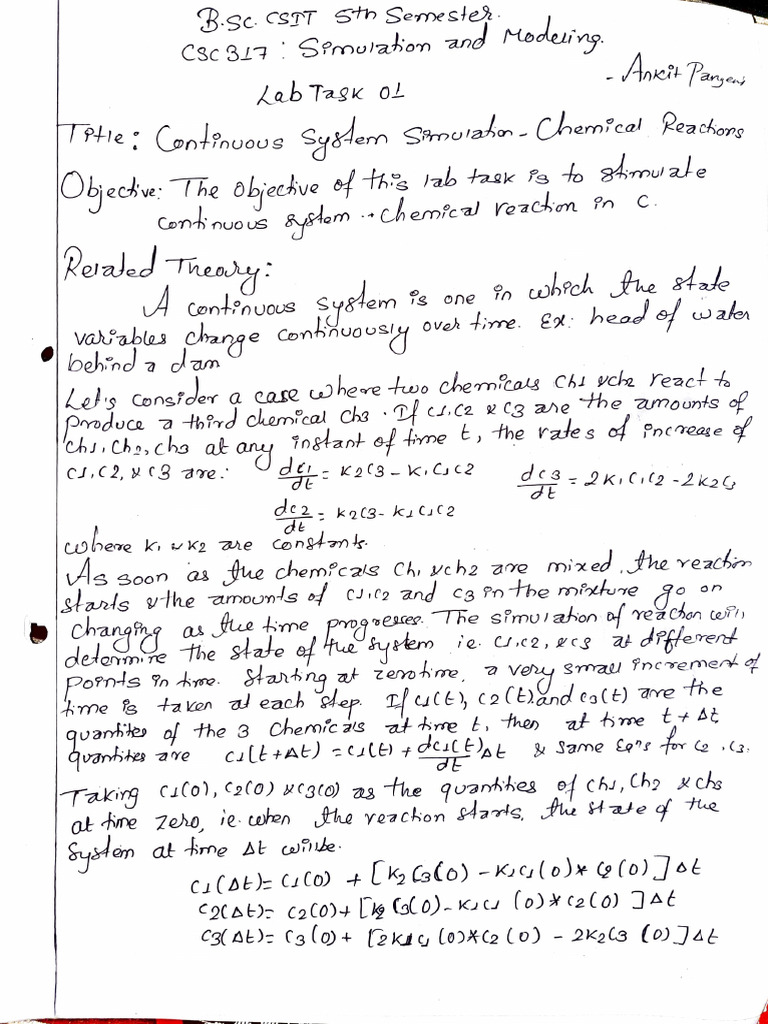 B.Sc. CSIT 5th Semester.
CSC317: Simulation and Modeling.
- Ankit Pangeni
Lab Task 01
Title: Continuous System Simulation - Chemical Reactions
Objective: The objective of this lab task is to stimulate
continuous system - chemical reaction in C.
Related Theory:
A continuous system is one in which the state
variables change continuously over time. Ex: head of water
behind a dam
Let's consider a case where two chemicals Ch1 & ch2 react to
produce a third chemical Ch3. If c1, c2 & c3 are the amounts of
Ch1, Ch2, Ch3 at any instant of time t, the rates of increase of
c1, c2, & c3 are: dc1/dt = K2C3 - K1C1C2 dc3/dt = 2K1C1C2 - 2K2C3
dc2/dt = K2C3 - K1C1C2
where K1 & K2 are constants.
As soon as the chemicals Ch1 & ch2 are mixed, the reaction
starts & the amounts of c1, c2 and c3 in the mixture go on
changing as the time progresses. The simulation of reaction will
determine the state of the system i.e. c1, c2, & c3 at different
points in time. Starting at zero time, a very small increment of
time is taken at each step. If c1(t), c2(t) and c3(t) are the
quantites of the 3 Chemicals at time t, then at time t + Δt
quantites are c1(t+Δt) = c1(t) + dc1(t)/dt Δt & same Eqns for c2, c3.
Taking C1(0), C2(0) & C3(0) as the quantities of Ch1, Ch2 & ch3
at time zero, ie. when the reaction starts, the state of the
system at time Δt will be.
C1(Δt) = C1(0) + [K2C3(0) - K1C1(0)*C2(0)]Δt
C2(Δt) = C2(0) + [K2C3(0) - K1C1(0)*C2(0)]Δt
C3(Δt) = C3(0) + [2K1C1(0)*C2(0) - 2K2C3(0)]Δt